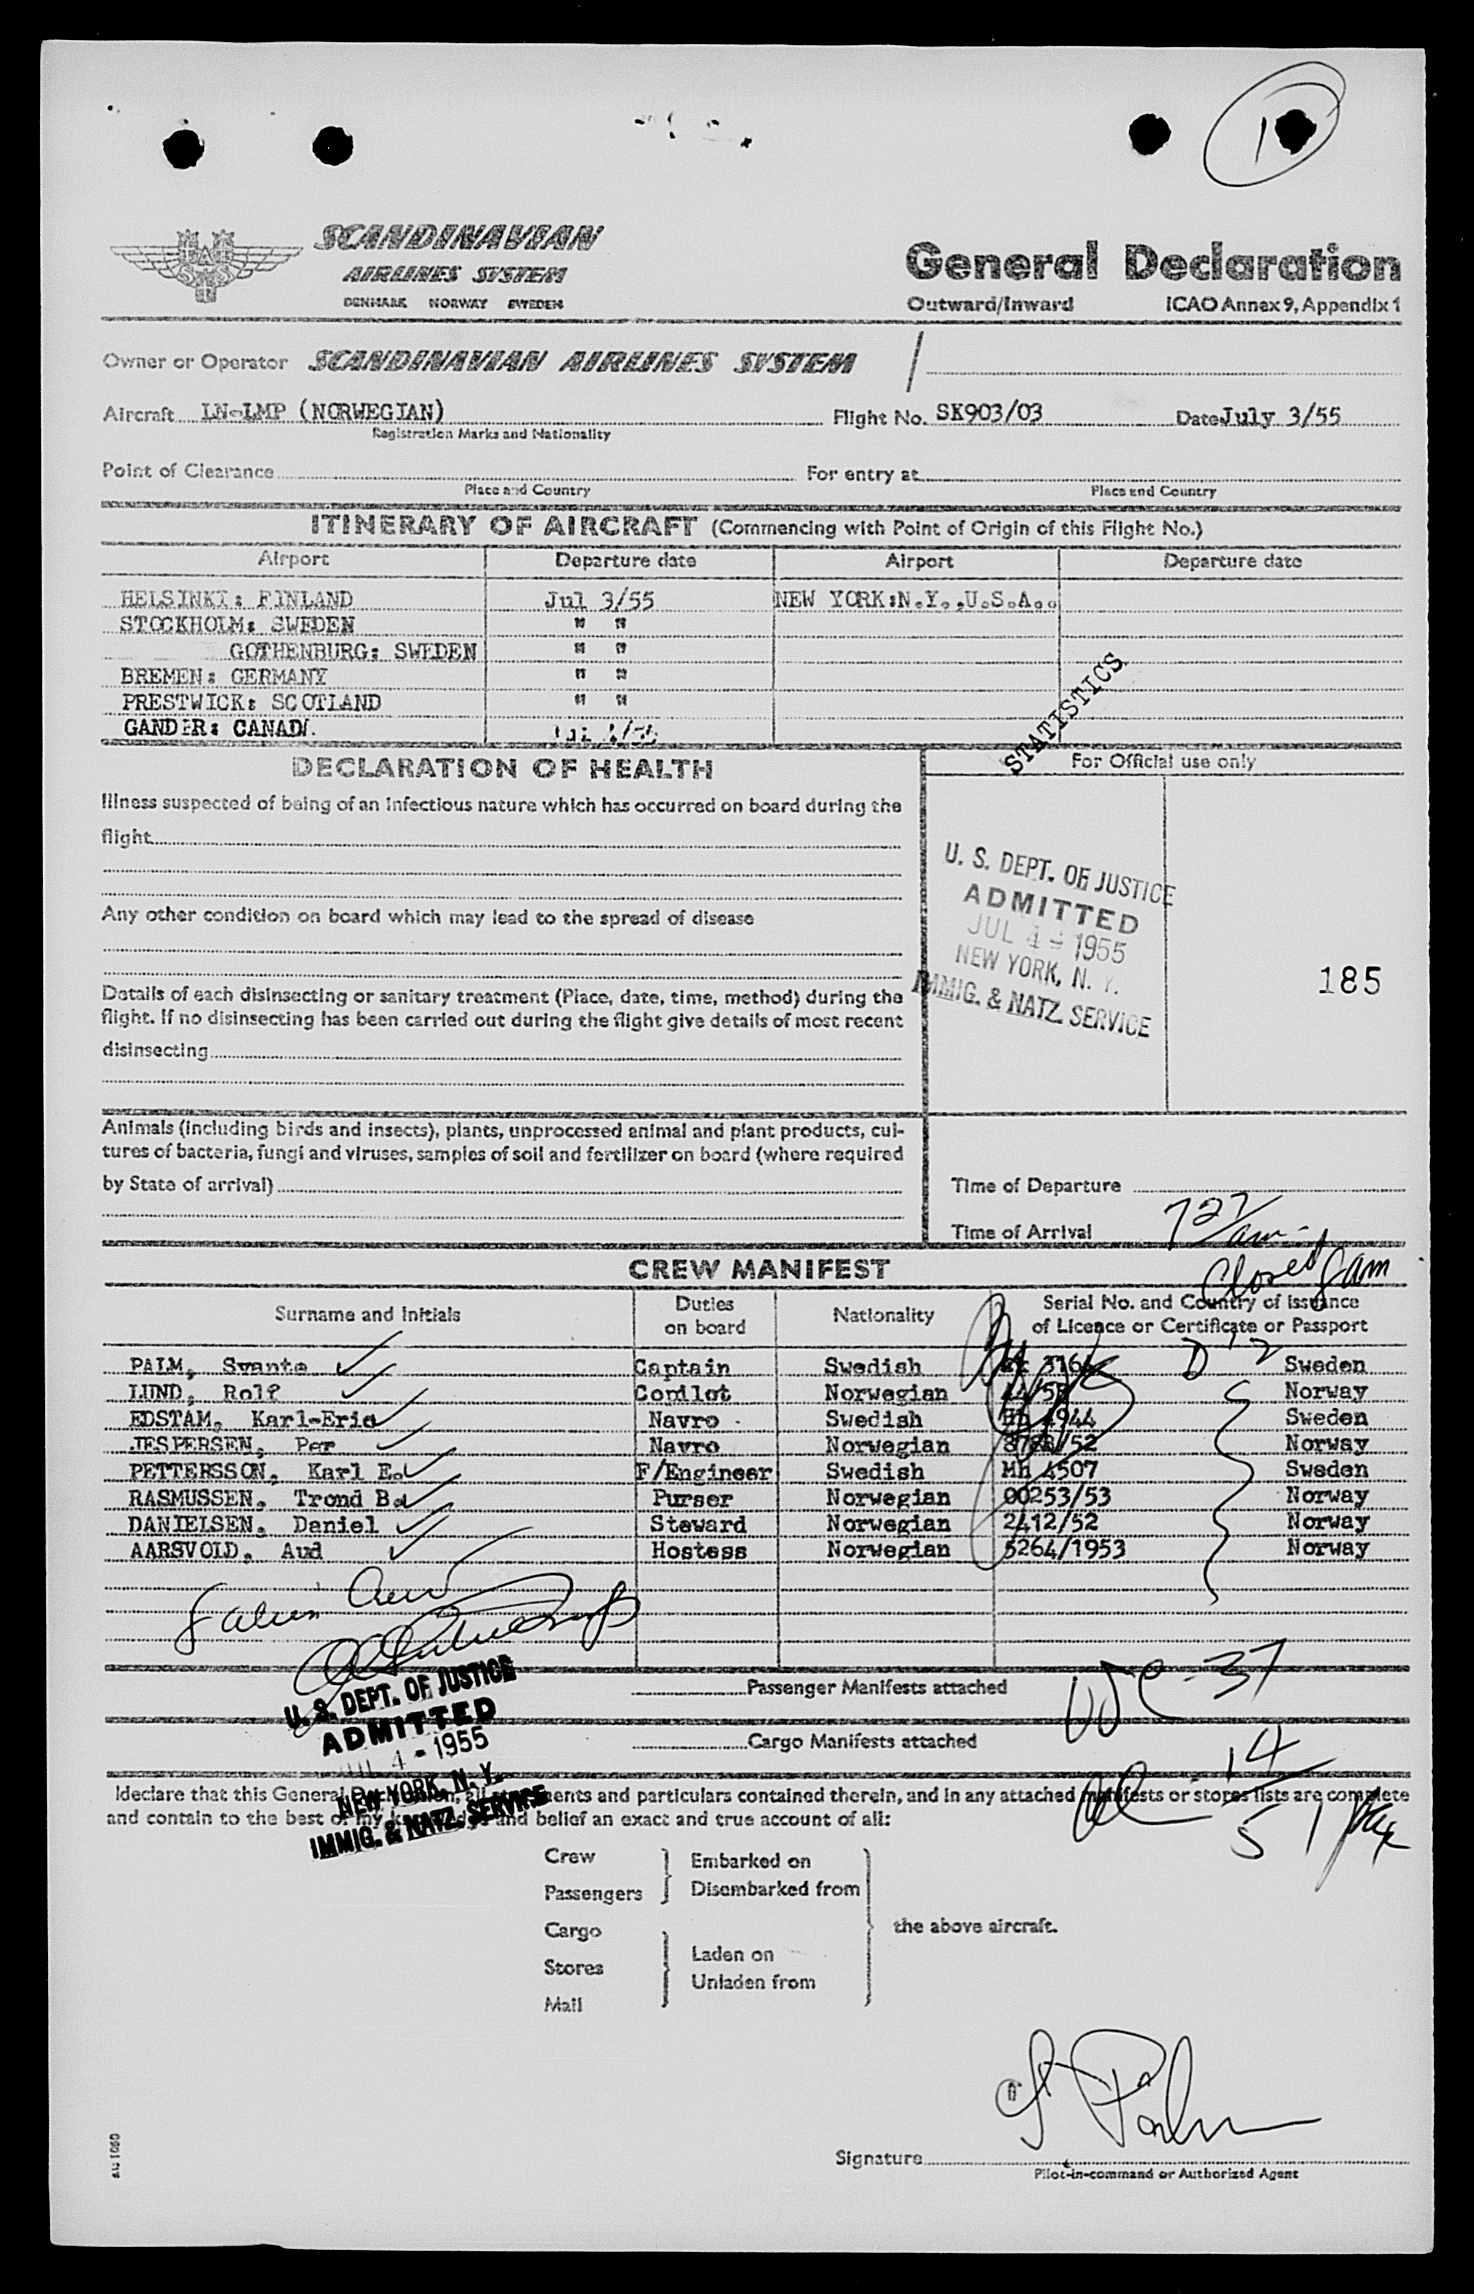 1
SCANDINAVIAN
AIRLINES SYSTEM
DENMARK NORWAY SWEDEN
General Declaration
Outward/Inward ICAO Annex 9, Appendix 1
Owner or Operator SCANDINAVIAN AIRLINES SYSTEM /
Aircraft LN-LMP (NORWEGIAN) Flight No. SK903/03 Date July 3/55
Registration Marks and Nationality
Point of Clearance For entry at
Place and Country Place and Country
ITINERARY OF AIRCRAFT (Commencing with Point of Origin of this Flight No.)
Airport Departure date Airport Departure date
HELSINKI: FINLAND Jul 3/55 NEW YORK:N.Y.,U.S.A..
STOCKHOLM: SWEDEN " "
GOTHENBURG: SWEDEN " "
BREMEN: GERMANY " "
PRESTWICK: SCOTLAND " "
GANDER: CANAD
STATISTICS
DECLARATION OF HEALTH
For Official use only
Illness suspected of being of an infectious nature which has occurred on board during the
flight
Any other condition on board which may lead to the spread of disease
Details of each disinsecting or sanitary treatment (Place, date, time, method) during the
flight. If no disinsecting has been carried out during the flight give details of most recent
disinsecting
U. S. DEPT. OF JUSTICE
ADMITTED
JUL 4 - 1955
NEW YORK, N. Y.
IMMIG. & NATZ. SERVICE
185
Animals (including birds and insects), plants, unprocessed animal and plant products, cul-
tures of bacteria, fungi and viruses, samples of soil and fertilizer on board (where required
by State of arrival)
Time of Departure
Time of Arrival 727 am
Closed 8 am
CREW MANIFEST
Surname and Initials Duties on board Nationality Serial No. and Country of issuance of Licence or Certificate or Passport
PALM, Svante Captain Swedish D 2 Sweden
LUND, Rolf Copilot Norwegian Norway
EDSTAM, Karl-Eric Navro Swedish Mh 4944 Sweden
JESPERSEN, Per Navro Norwegian Norway
PETTERSSON, Karl E. F/Engineer Swedish Mh 4507 Sweden
RASMUSSEN, Trond B. Purser Norwegian 00253/53 Norway
DANIELSEN, Daniel Steward Norwegian 2412/52 Norway
AARSVOLD, Aud Hostess Norwegian 5264/1953 Norway
8 alien Crew
U. S. DEPT. OF JUSTICE
ADMITTED
JUL 4 - 1955
NEW YORK, N. Y.
IMMIG. & NATZ. SERVICE
Passenger Manifests attached
USC - 37
Cargo Manifests attached
14
51 pax
I declare that this General Declaration, all statements and particulars contained therein, and in any attached manifests or stores lists are complete
and contain to the best of my knowledge and belief an exact and true account of all:
Crew
Passengers
Embarked on
Disembarked from
Cargo
Stores
Mail
Laden on
Unladen from
the above aircraft.
S Palm
Signature
Pilot-in-command or Authorized Agent